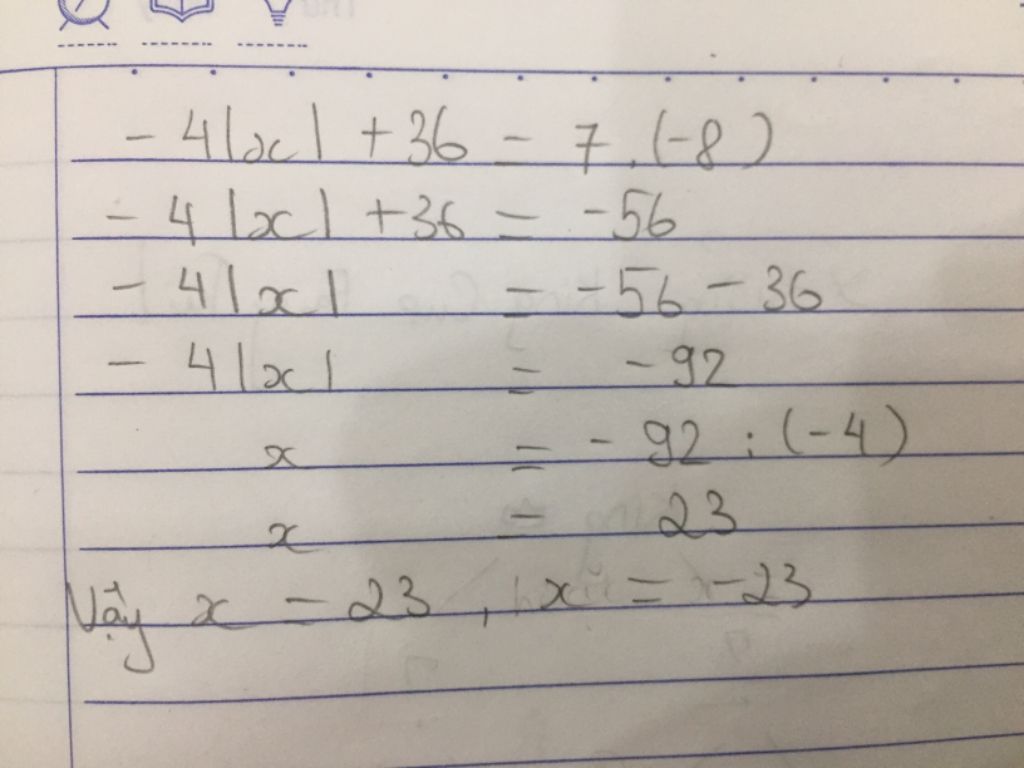 - 4|x| + 36 = 7 . (-8)
- 4 |x| + 36 = -56
- 4 |x| = -56 - 36
- 4 |x| = -92
x = - 92 : (-4)
x = 23
Vậy x = 23 , x = -23